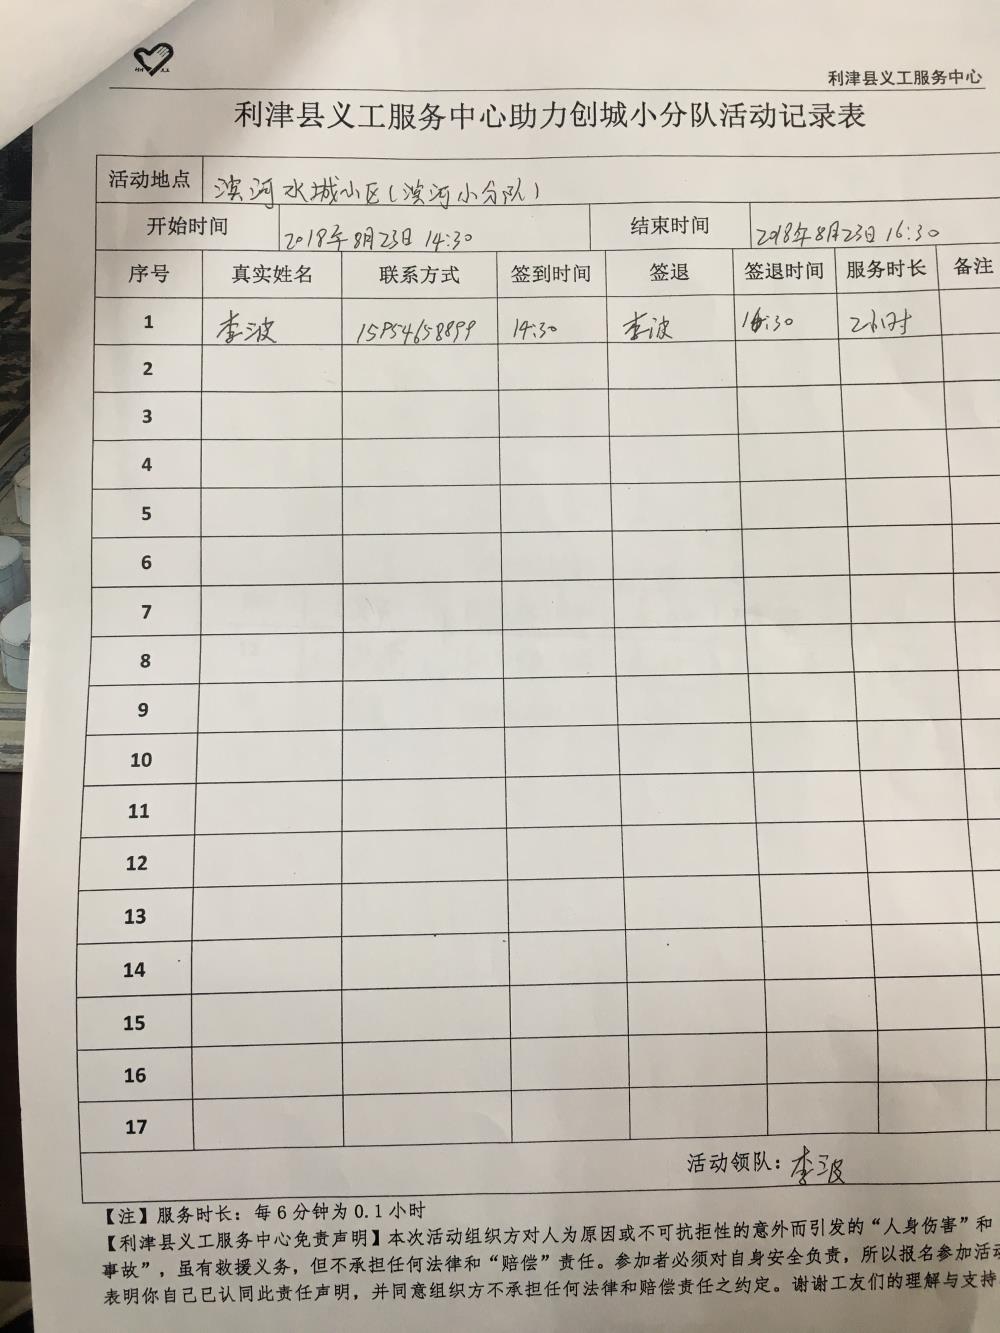 利津县义工服务中心
利津县义工服务中心助力创城小分队活动记录表
活动地点 滨河水城小区(滨河小分队)
开始时间 2018年8月23日 14:30 结束时间 2018年8月23日 16:30
序号 真实姓名 联系方式 签到时间 签退 签退时间 服务时长 备注
1 李波 15954658899 14:30 李波 16:30 2小时
2
3
4
5
6
7
8
9
10
11
12
13
14
15
16
17
活动领队：李波
【注】服务时长：每6分钟为0.1小时
【利津县义工服务中心免责声明】本次活动组织方对人为原因或不可抗拒性的意外而引发的“人身伤害”和
事故”，虽有救援义务，但不承担任何法律和“赔偿”责任。参加者必须对自身安全负责，所以报名参加活动
表明你自己已认同此责任声明，并同意组织方不承担任何法律和赔偿责任之约定。谢谢工友们的理解与支持